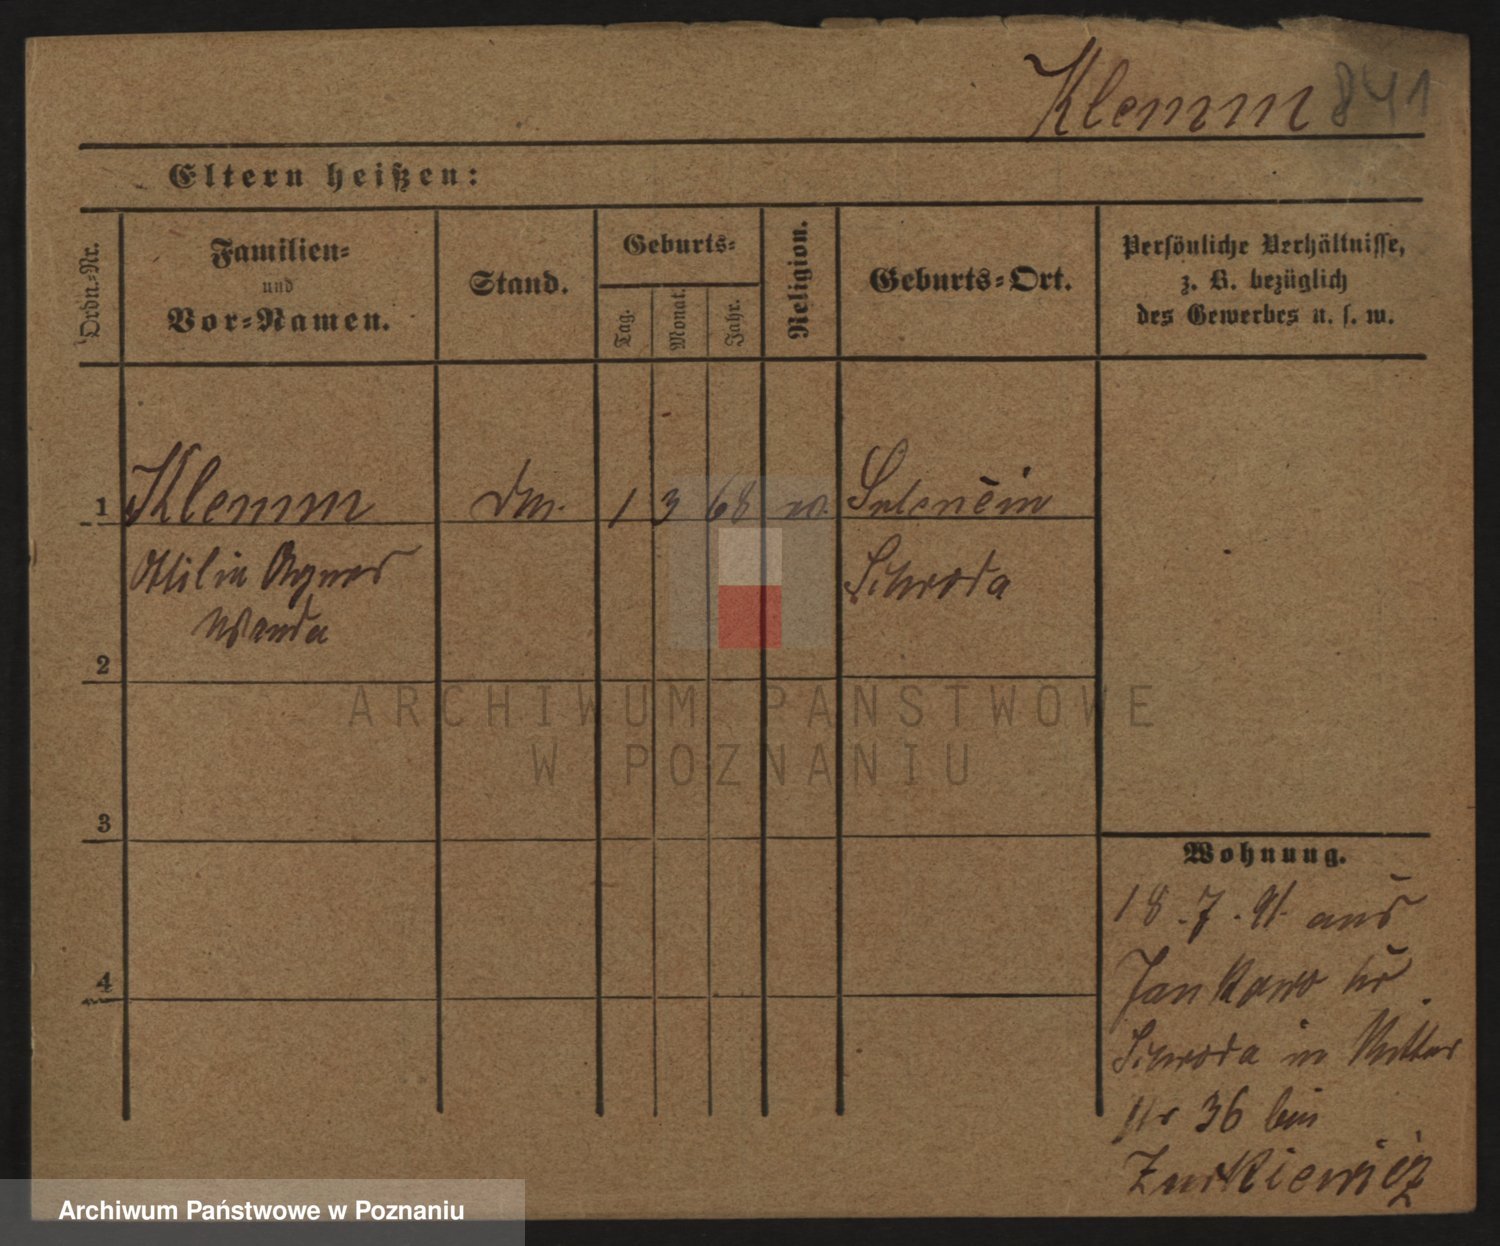 Klemm 841
Eltern heißen:
Ordn.-Nr.
Familien-
und
Vor-Namen.
Stand.
Geburts-
Tag.
Monat.
Jahr.
Religion.
Geburts-Ort.
Persönliche Verhältnisse,
z. B. bezüglich
des Gewerbes u. s. w.
1 Klemm 1 3 68
Ottilie Agnes
Wanda
Schroda
2
3
4
Wohnung.
18.7.91. aus
Jankowo Kr.
Schroda in
Nr 36 bei
ARCHIWUM PAŃSTWOWE
W POZNANIU
Archiwum Państwowe w Poznaniu